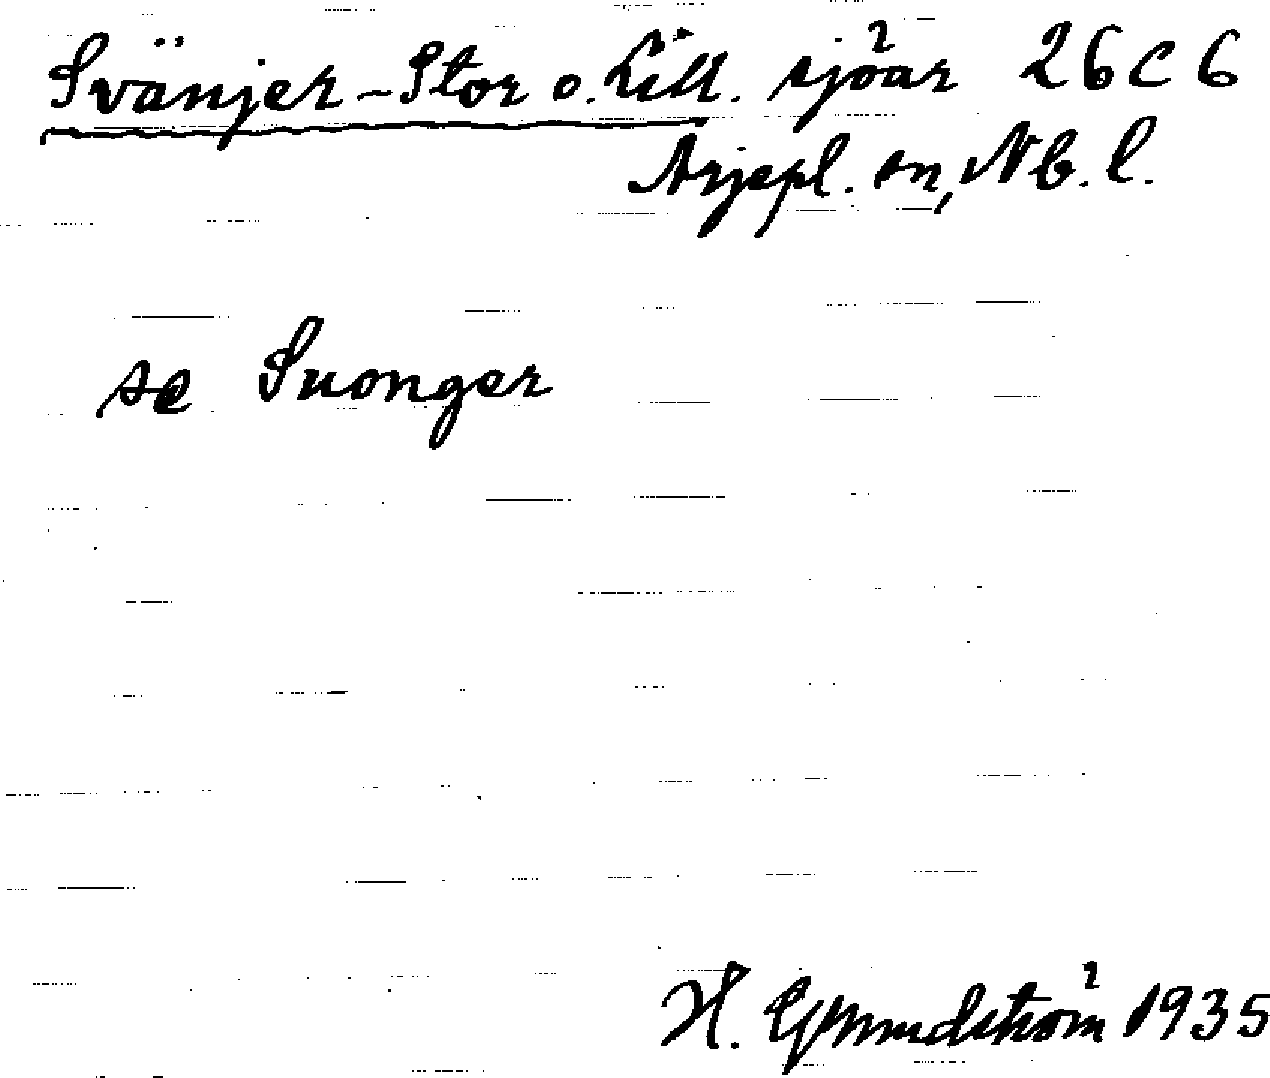 Svänjer-Stor o. Lill. sjöar 26 C 6
Arjepl. sn, Nb. l.
se Suonger
H. Grundström 1935